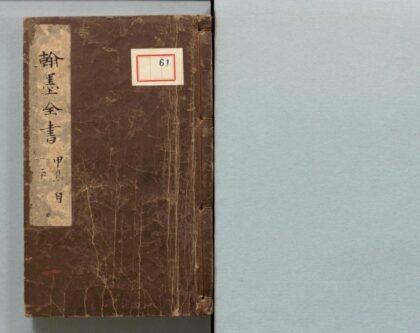 翰墨全書
甲集 目
61